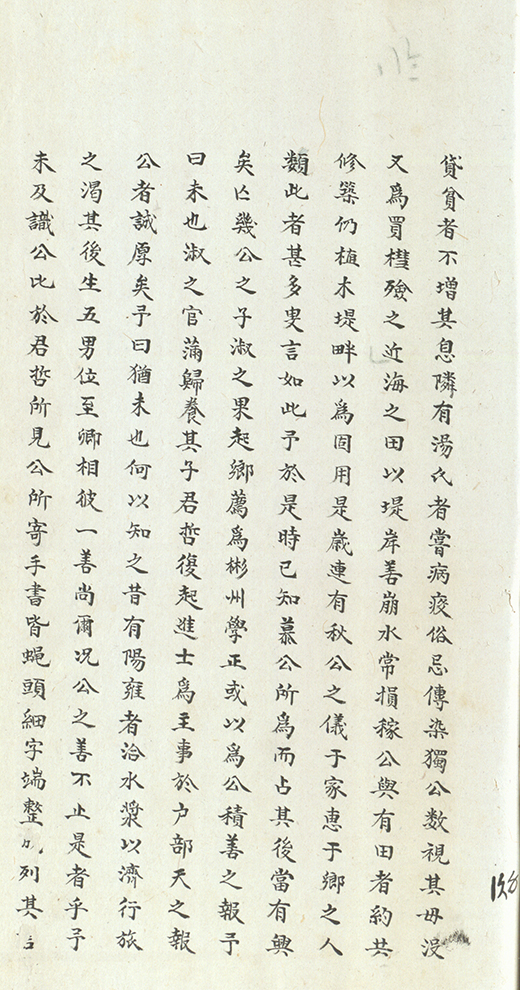 貸貧者不增其息隣有湯氏者嘗病疫俗忌傳染獨公數視其毋沒
又為買槥殮之近海之田以堤岸善崩水常損稼公與有田者約共
修築仍植木堤畔以為固用是歲連有秋公之儀于家惠于鄉之人
類此者甚多叟言如此予於是時已知慕公所為而占其後當有興
矣亡幾公之子淑之果起鄉薦為彬州學正或以為公積善之報予
曰未也淑之官蒲歸養其子君哲復起進士為主事於户部天之報
公者誠厚矣予曰猶未也何以知之昔有陽雍者洽水漿以濟行旅
之渴其後生五男位至卿相彼一善尚爾况公之善不止是者乎予
未及識公比於君哲所見公所寄手書皆蝇頭細字端整 列其